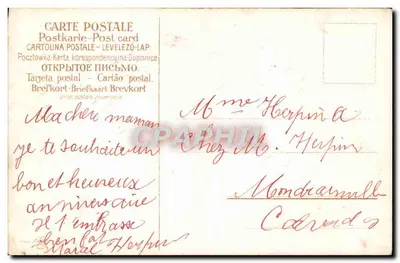 CARTE POSTALE
Postkarte - Post card
CARTOLINA POSTALE - LEVELEZŐ-LAP
Poczłówka - Karta korespondencyjna - Dopisnice
ОТКРЫТОЕ ПИСЬМО
Tarjeta postal - Cartão postal
Brefkort - Briefkaart Brevkort
Ma chère maman
je te souhaite un
bon et heureux
anniversaire
je t'embrasse
bien fort
Marcel Herpin
Mme Herpin A
Chez M. Herpin
Mondrainville
Calvados
CPAPHIL